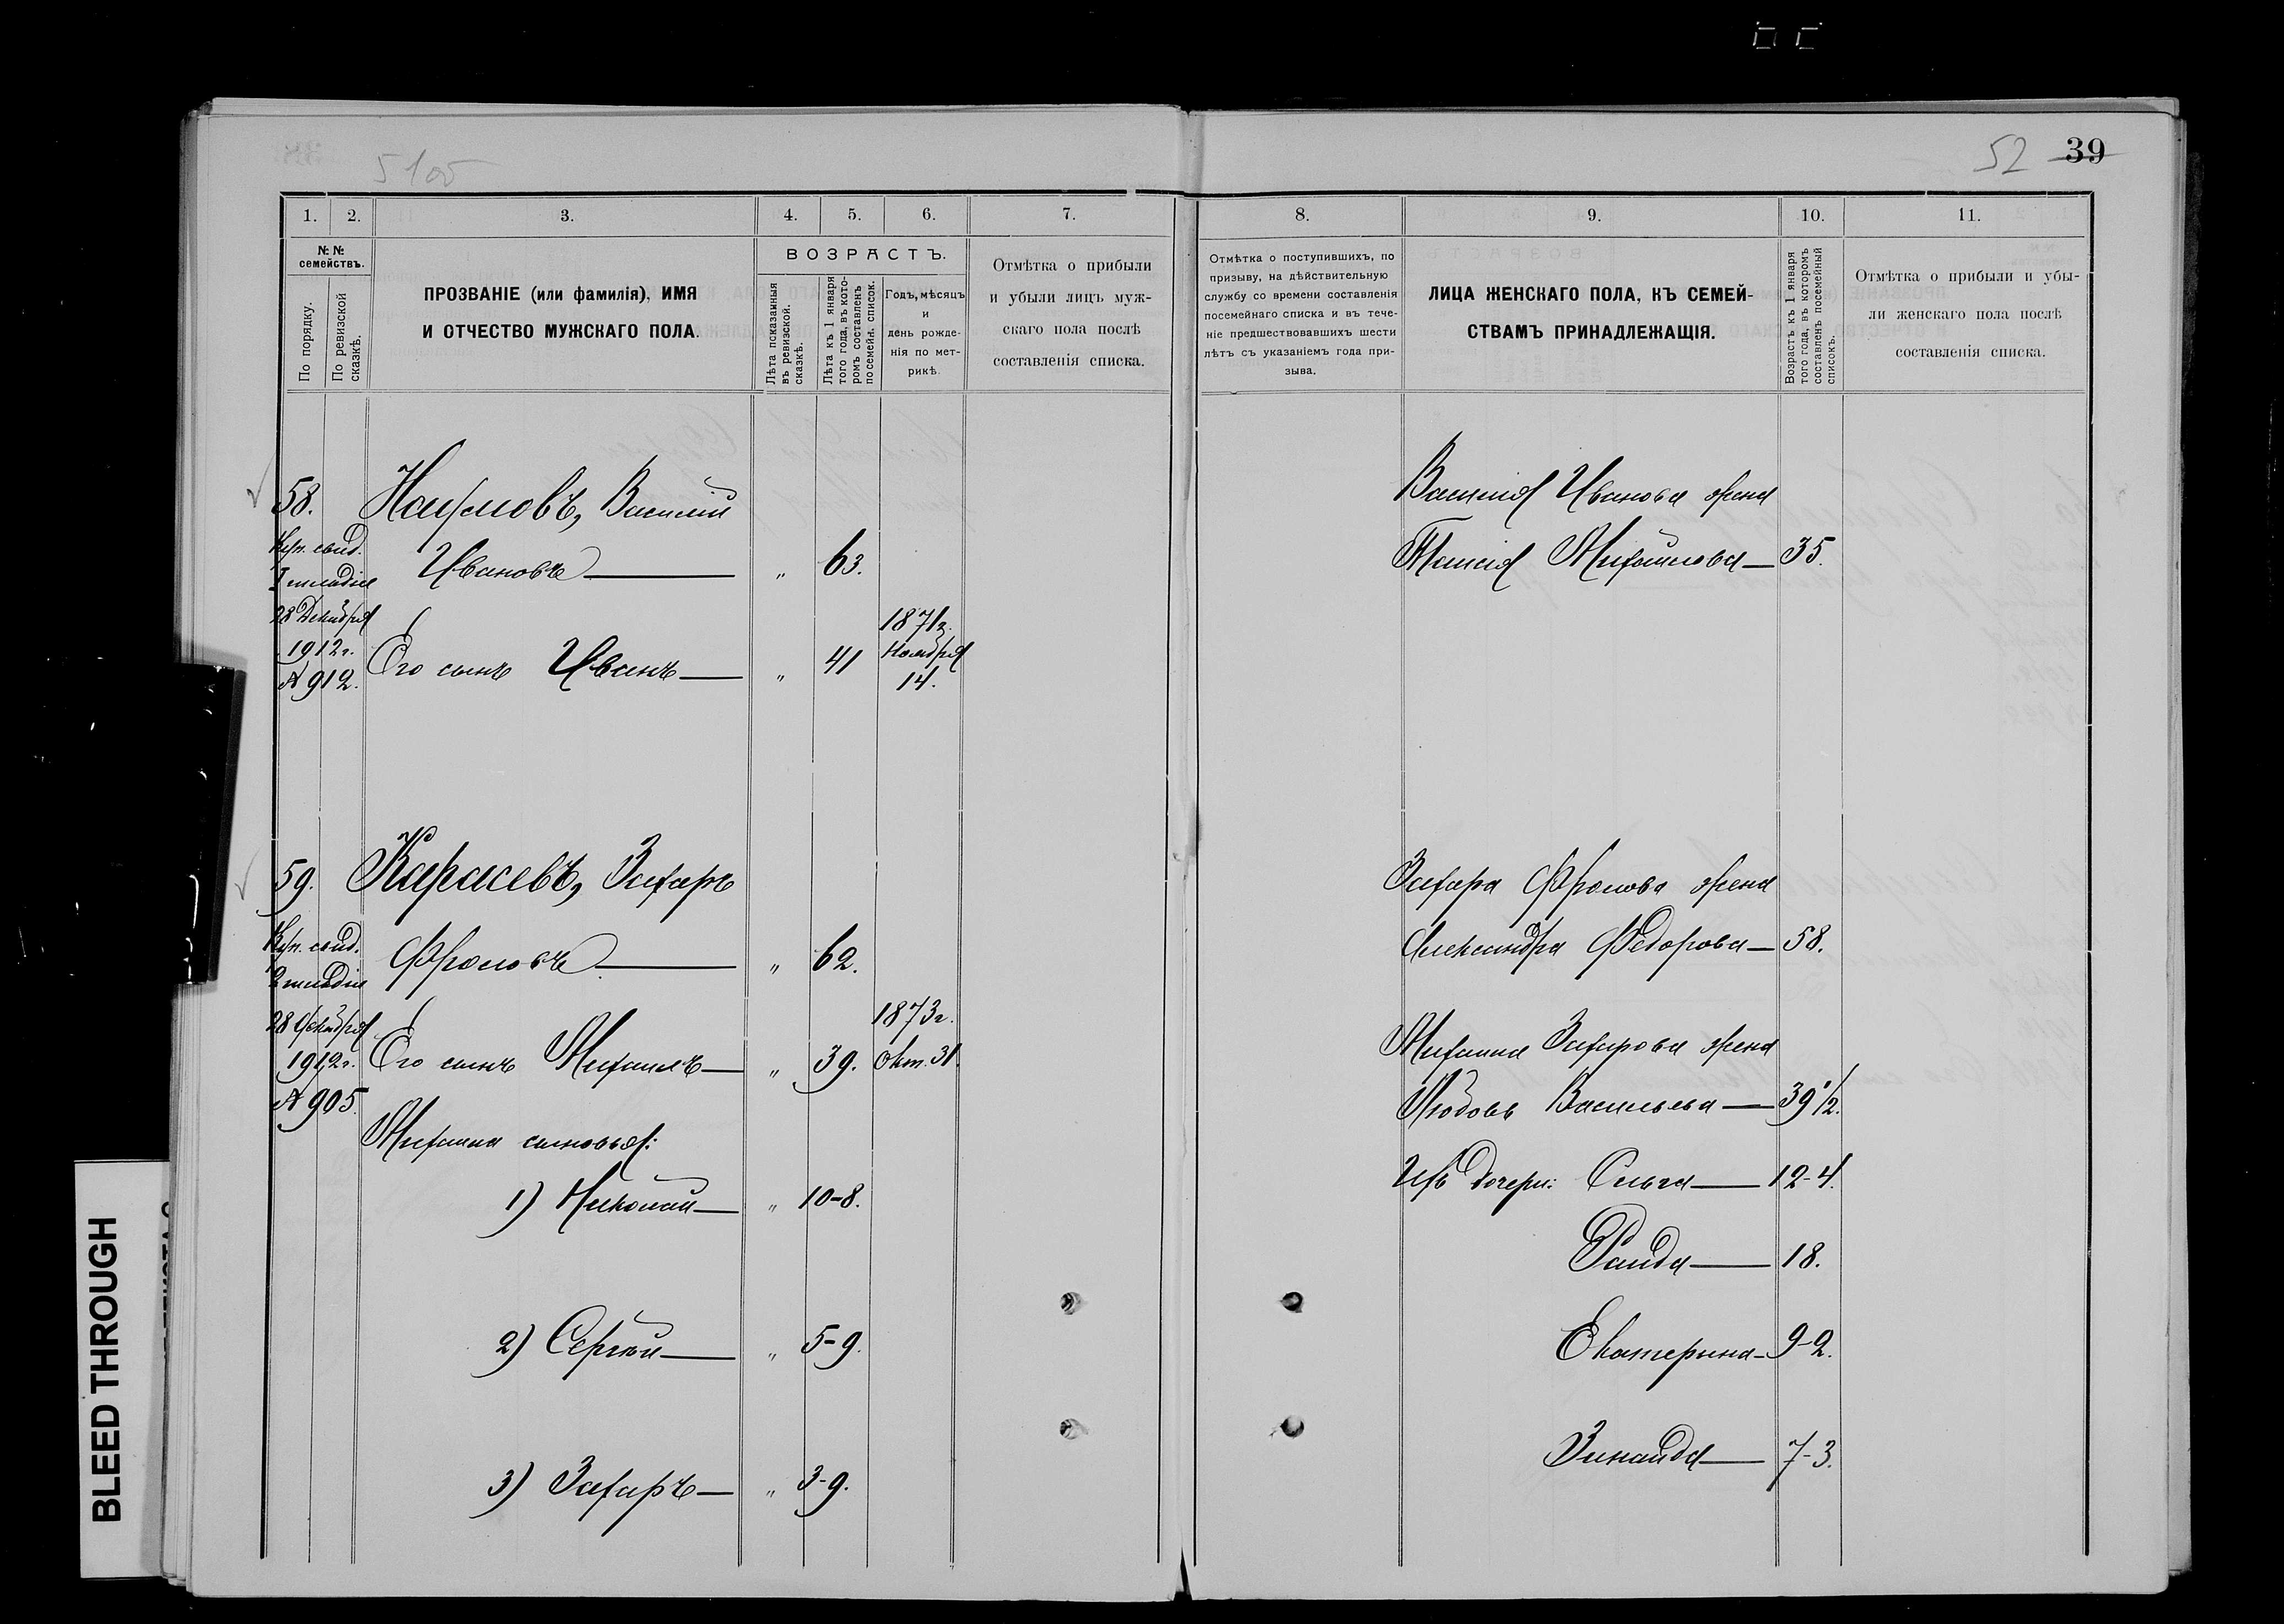 5100
52 39
1. 2. 3. 4. 5. 6. 7.
№ №
семействъ.
По порядку.
По ревизской
сказкѣ.
ПРОЗВАНІЕ (или фамилія), ИМЯ
И ОТЧЕСТВО МУЖСКАГО ПОЛА.
ВОЗРАСТЪ.
Лѣта показанныя
въ ревизской.
сказкѣ.
Лѣта къ 1 января
того года, въ кото-
ромъ составленъ
посемейн. список.
Годъ, мѣсяцъ
и
день рожде-
нія по мет-
рикѣ.
Отмѣтка о прибыли
и убыли лицъ муж-
скаго пола послѣ
составленія списка.
58. Наумовъ, Василій
Куп. свид. Ивановъ — „ 63.
I гильдіи
28 Декабря
1912 г. Его сынъ Иванъ — „ 41 1871 г.
№ 912. Ноября
14.
59. Карасевъ, Захаръ
Куп. свид. Фроловъ — „ 62.
2 гильдіи
28 Декабря 1873 г.
1912 г. Его сынъ Михаилъ — „ 39. Окт. 31.
№ 905.
Михаила сыновья:
1) Николай — „ 10-8.
2) Сергѣй — „ 5-9.
3) Захаръ — „ 3-9.
8. 9. 10. 11.
Отмѣтка о поступившихъ, по
призыву, на дѣйствительную
службу со времени составленія
посемейнаго списка и въ тече-
ніе предшествовавшихъ шести
лѣтъ съ указаніемъ года при-
зыва.
ЛИЦА ЖЕНСКАГО ПОЛА, КЪ СЕМЕЙ-
СТВАМЪ ПРИНАДЛЕЖАЩІЯ.
Возрастъ къ 1 января
того года, въ которомъ
составленъ посемейный
списокъ.
Отмѣтка о прибыли и убы-
ли женскаго пола послѣ
составленія списка.
Василія Иванова жена
Таисія Михайлова — 35.
Захара Фролова жена
Александра Федорова — 58.
Михаила Захарова жена
Любовь Васильева — 39 1/2.
Ихъ дочери: Ольга — 12-4.
Раида — 18.
Екатерина — 9-2.
Зинаида — 7-3.
BLEED THROUGH